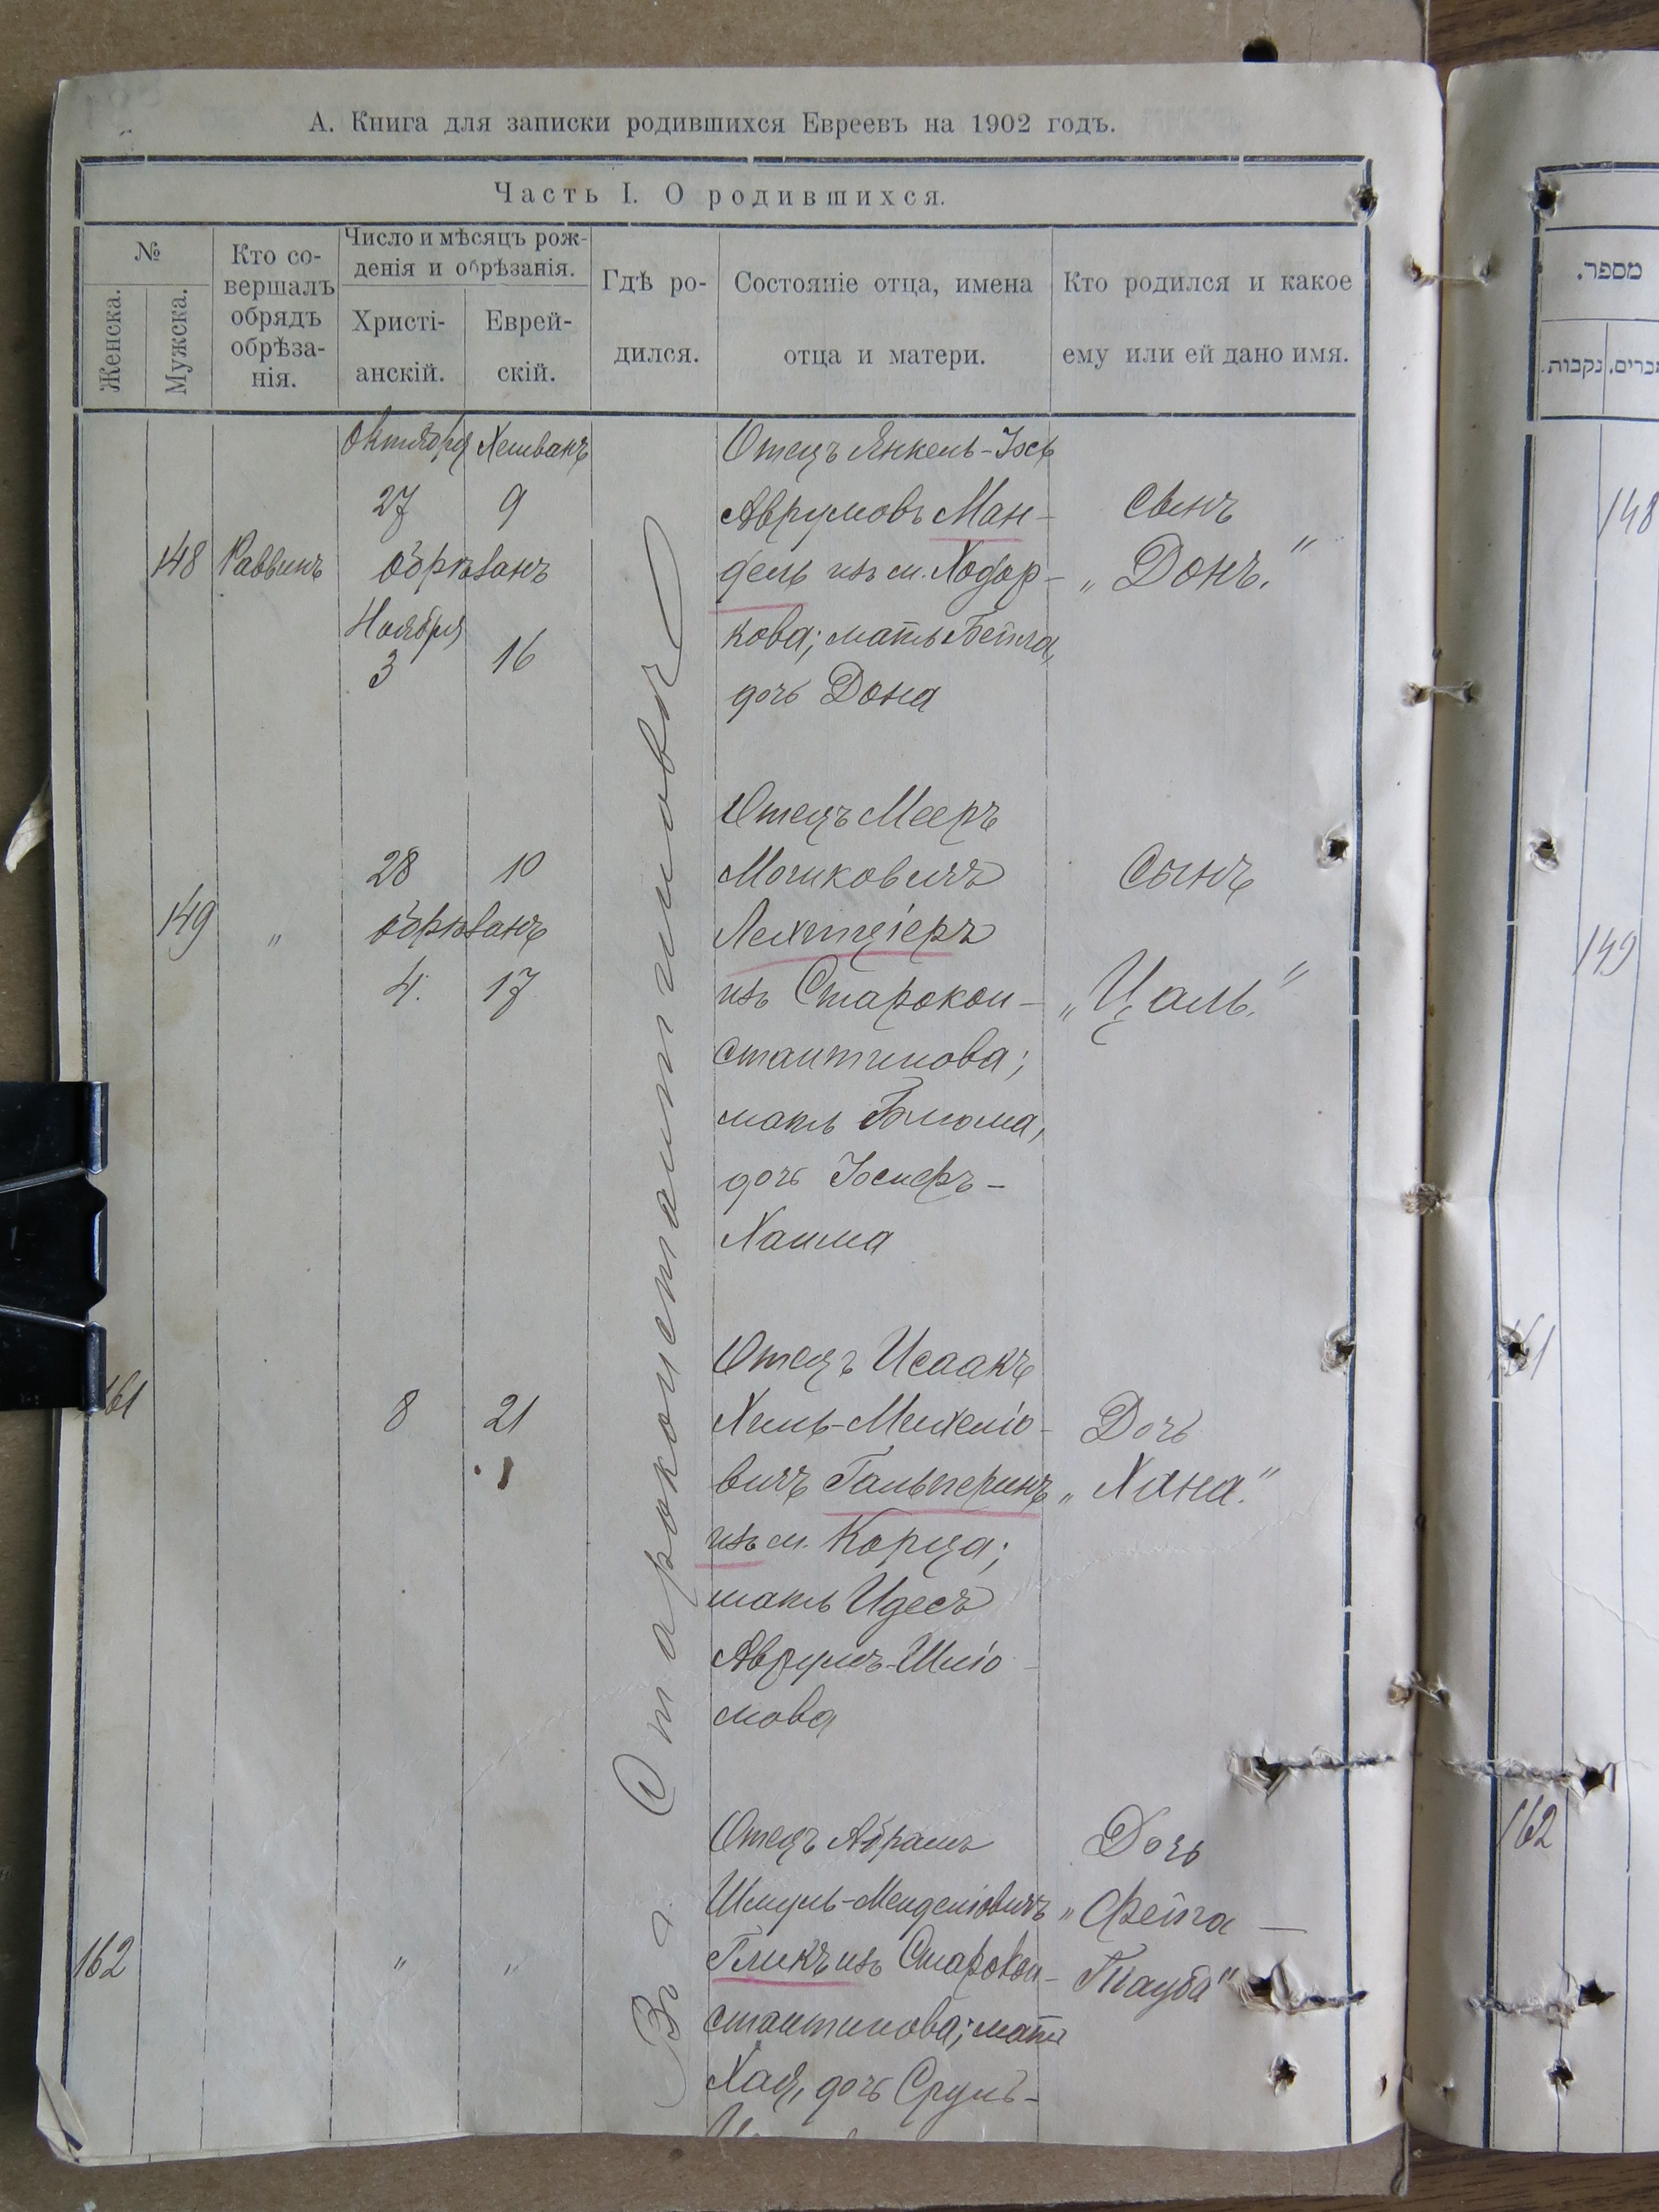 А. Книга для записки родившихся Евреевъ на 1902 годъ.
Часть I. О родившихся.
№
Женска.
Мужска.
Кто со-
вершалъ
обрядъ
обрѣза-
нія.
Число и мѣсяцъ рож-
денія и обрѣзанія.
Христі-
анскій.
Еврей-
скій.
Гдѣ ро-
дился.
Состояніе отца, имена
отца и матери.
Кто родился и какое
ему или ей дано имя.
Въ г. Староконстантиновѣ
148
Раввинъ
Октября Хешванъ
27 9
обрѣзанъ
Ноября
3 16
Отецъ Янкель-Іось
Аврумовъ Ман-
дель изъ м. Ходор-
кова; мать Бейла,
дочь Дона
Сынъ
„Донъ."
149
„
28 10
обрѣзанъ
4. 17
Отецъ Мееръ
Мошковичъ
Лехтціеръ
изъ Старокон-
стантинова;
мать Блюма,
дочь Іосифъ-
Хаима
Сынъ
„Цаль."
161
8 21
Отецъ Исаакъ
Хиль-Михеліо-
вичъ Гальперинъ
изъ м. Корца;
мать Идесъ
Аврумъ-Шліо-
мова
Дочь
„Хана."
162
„ „
Отецъ Абрамъ
Шмуль-Менделіовичъ
Гликъ изъ Старокон-
стантинова; мать
Хая, дочь Сруль-
Дочь
„Фейга-
Тауба"
מספר.
זכרים.
נקבות.
148
149
161
162